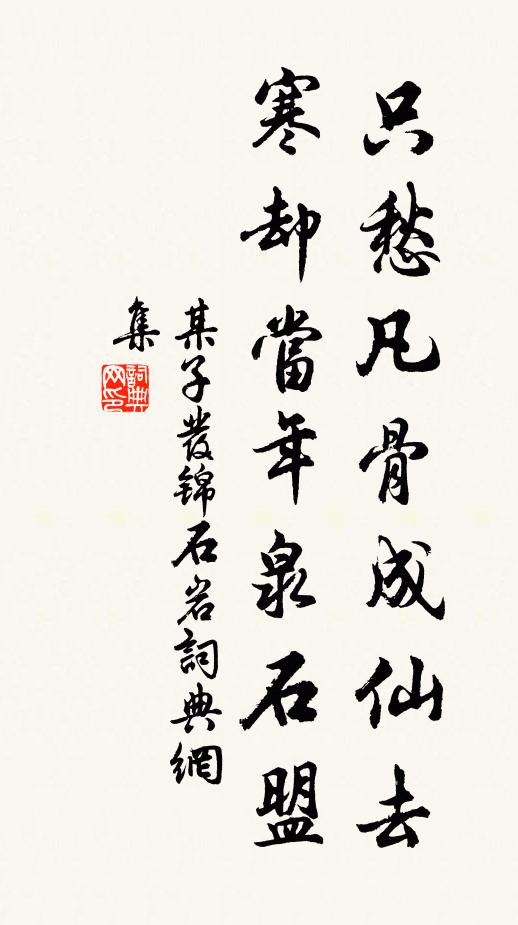 只愁凡骨成仙去
寒却當年泉石盟
某子發錦石岩詞典網
集
詞典
网印